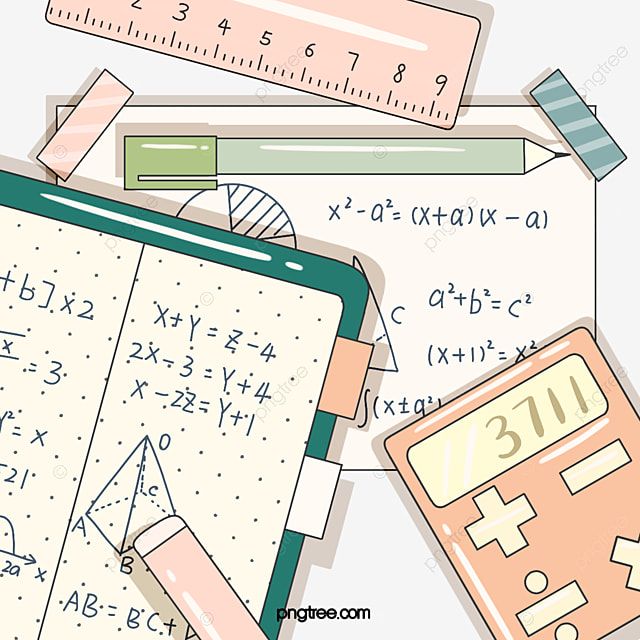 2 3 4 5 6 7 8 9
x²-a²=(x+a)(x-a)
a²+b²=c²
C
(x+1)²=x²
∫(x±a²)
3711
+b]x2
x
=3
²=x
=21
2a x
x+y=z-4
2x-3=y+4
x-2z=y+1
O
C
A
B
AB=BC+
pngtree.com